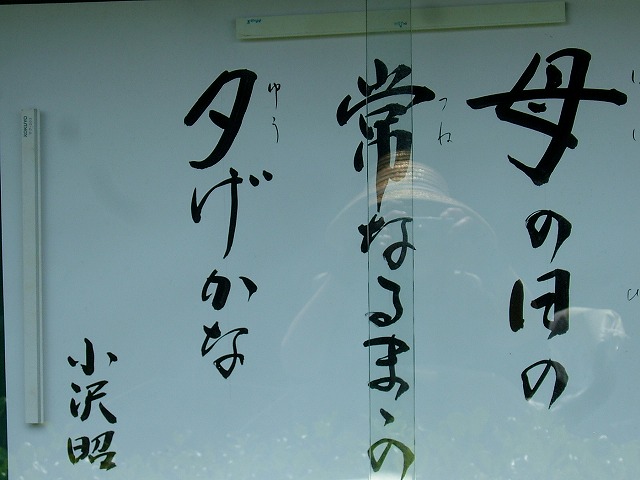 母の日の
常なるまゝの
夕げかな
小沢昭
つね
ゆう